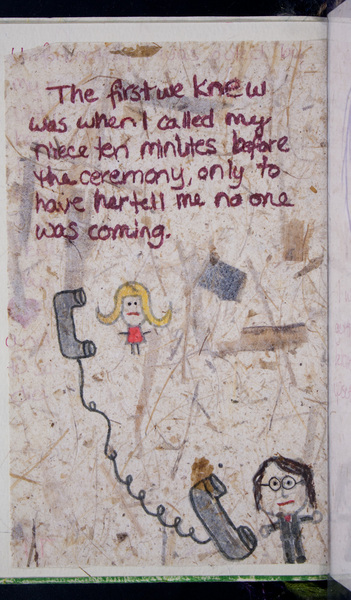 The first we knew
was when I called my
niece ten minutes before
the ceremony, only to
have her tell me no one
was coming.